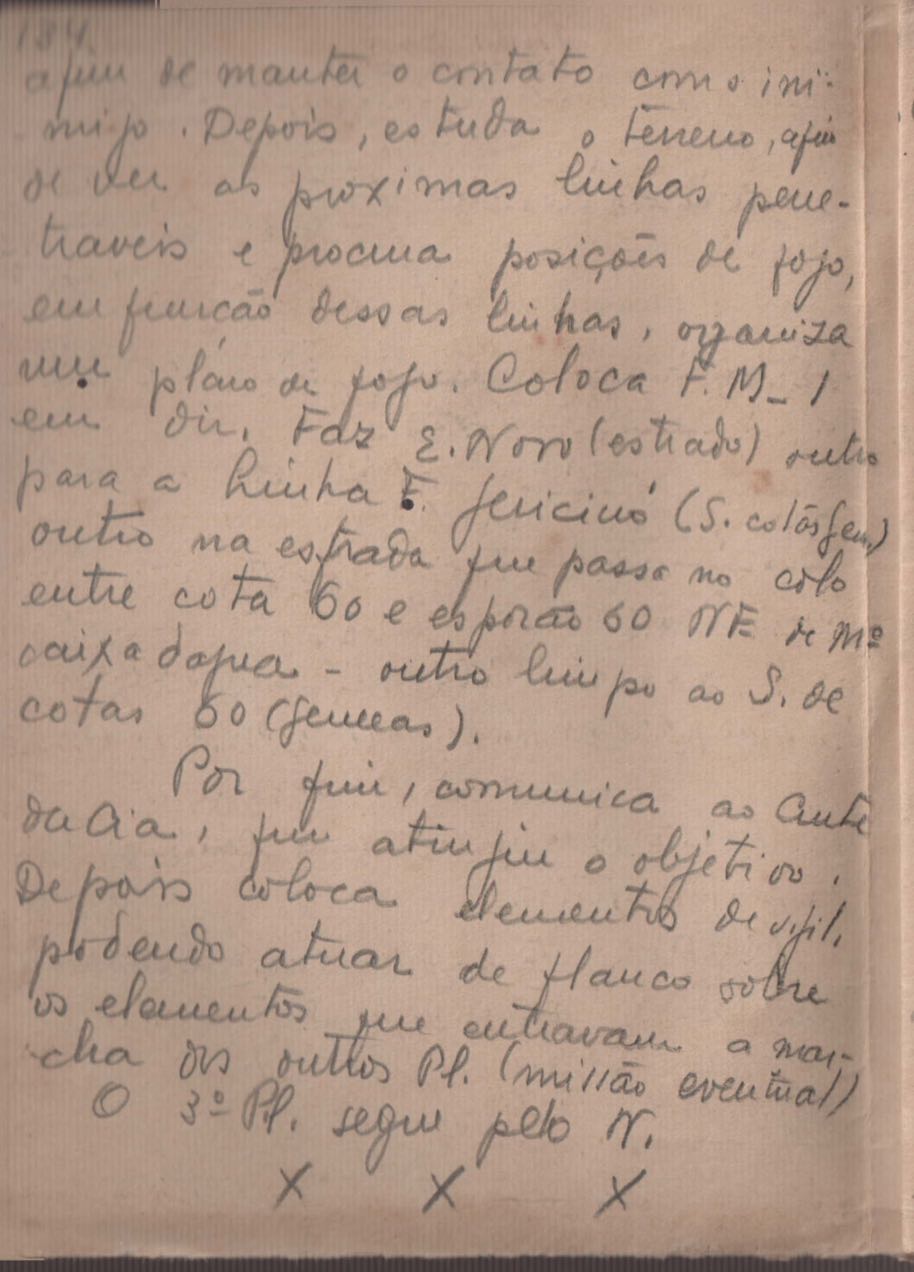 134.
afim de manter o contato com o ini-
migo. Depois, estuda o terreno, afim
de ver as proximas linhas pene-
traveis e procura posições de fogo,
em função dessas linhas, organiza
um plano de fogo. Coloca F.M_1
em dir. Faz E. Novo (estrada) outro
para a linha F. Gericinó (S. cotas gem.)
outro na estrada que passa no colo
entre cota 60 e esporão 60 NE de Mº
caixa dagua - outro limpo ao S. de
cotas 60 (gemeas).
Por fim, comunica ao Cmte
da Cia, que atingiu o objetivo.
Depois coloca elementos de vigil.
podendo atuar de flanco sobre
os elementos que entravam a mar-
cha dos outros Pl. (missão eventual)
O 3º Pl. segue pelo N.
X X X